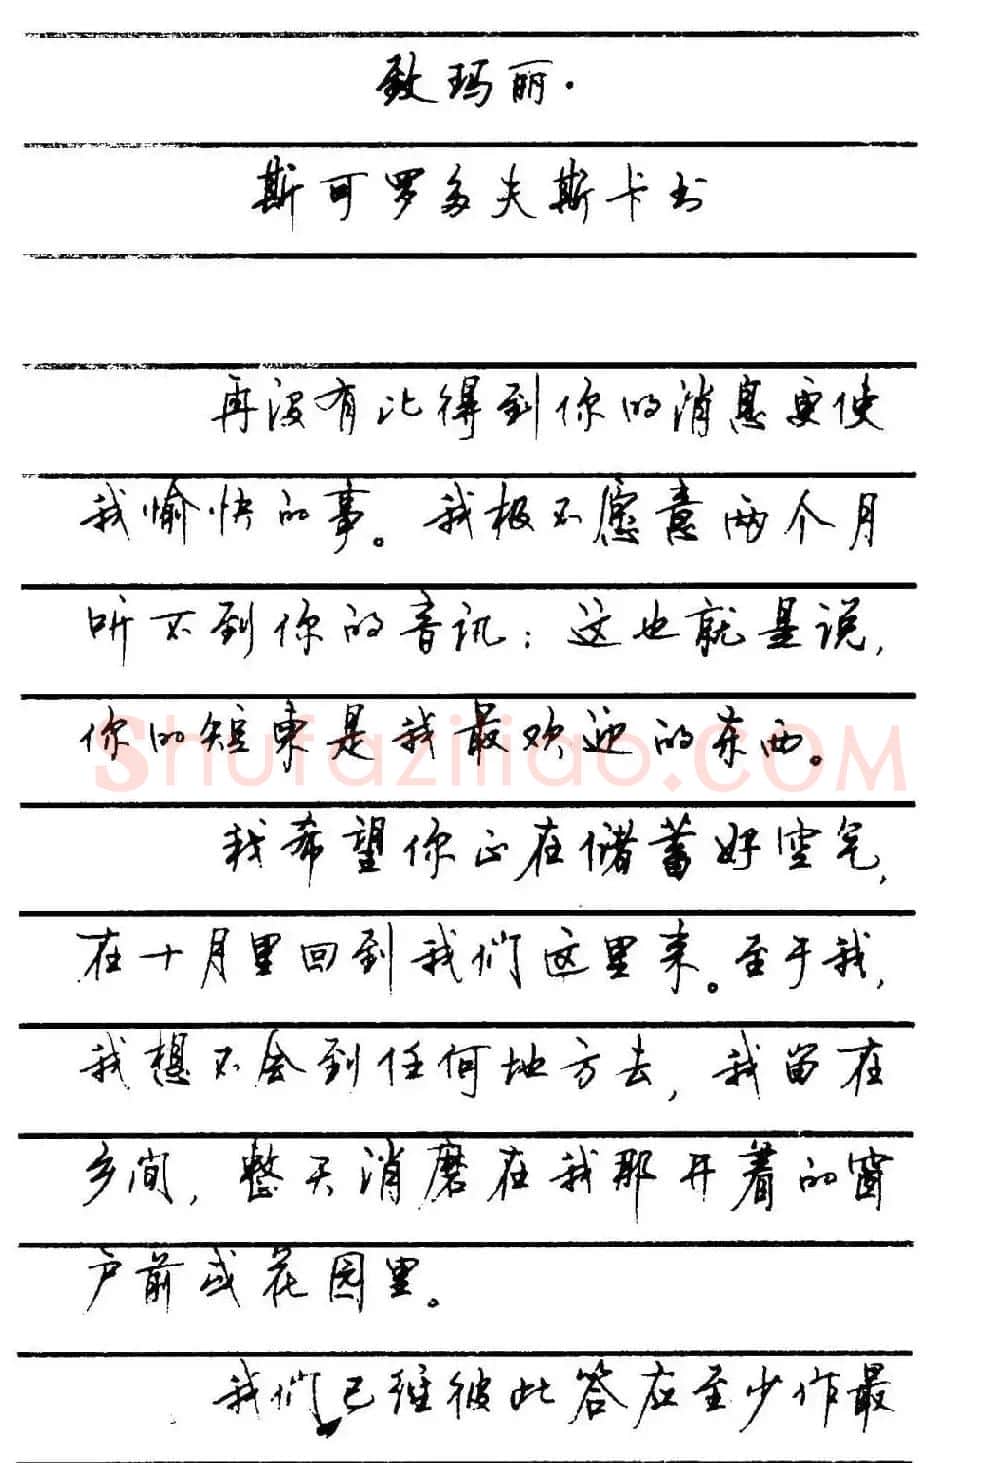 致玛丽·
斯可罗多夫斯卡书
再没有比得到你的消息更使
我愉快的事。我极不愿意两个月
听不到你的音讯；这也就是说，
你的短柬是我最欢迎的东西。
Shufaziliao.COM
我希望你正在储蓄好空气，
在十月里回到我们这里来。至于我，
我想不会到任何地方去，我留在
乡间，整天消磨在我那开着的窗
户前或花园里。
我们已经彼此答应至少作最